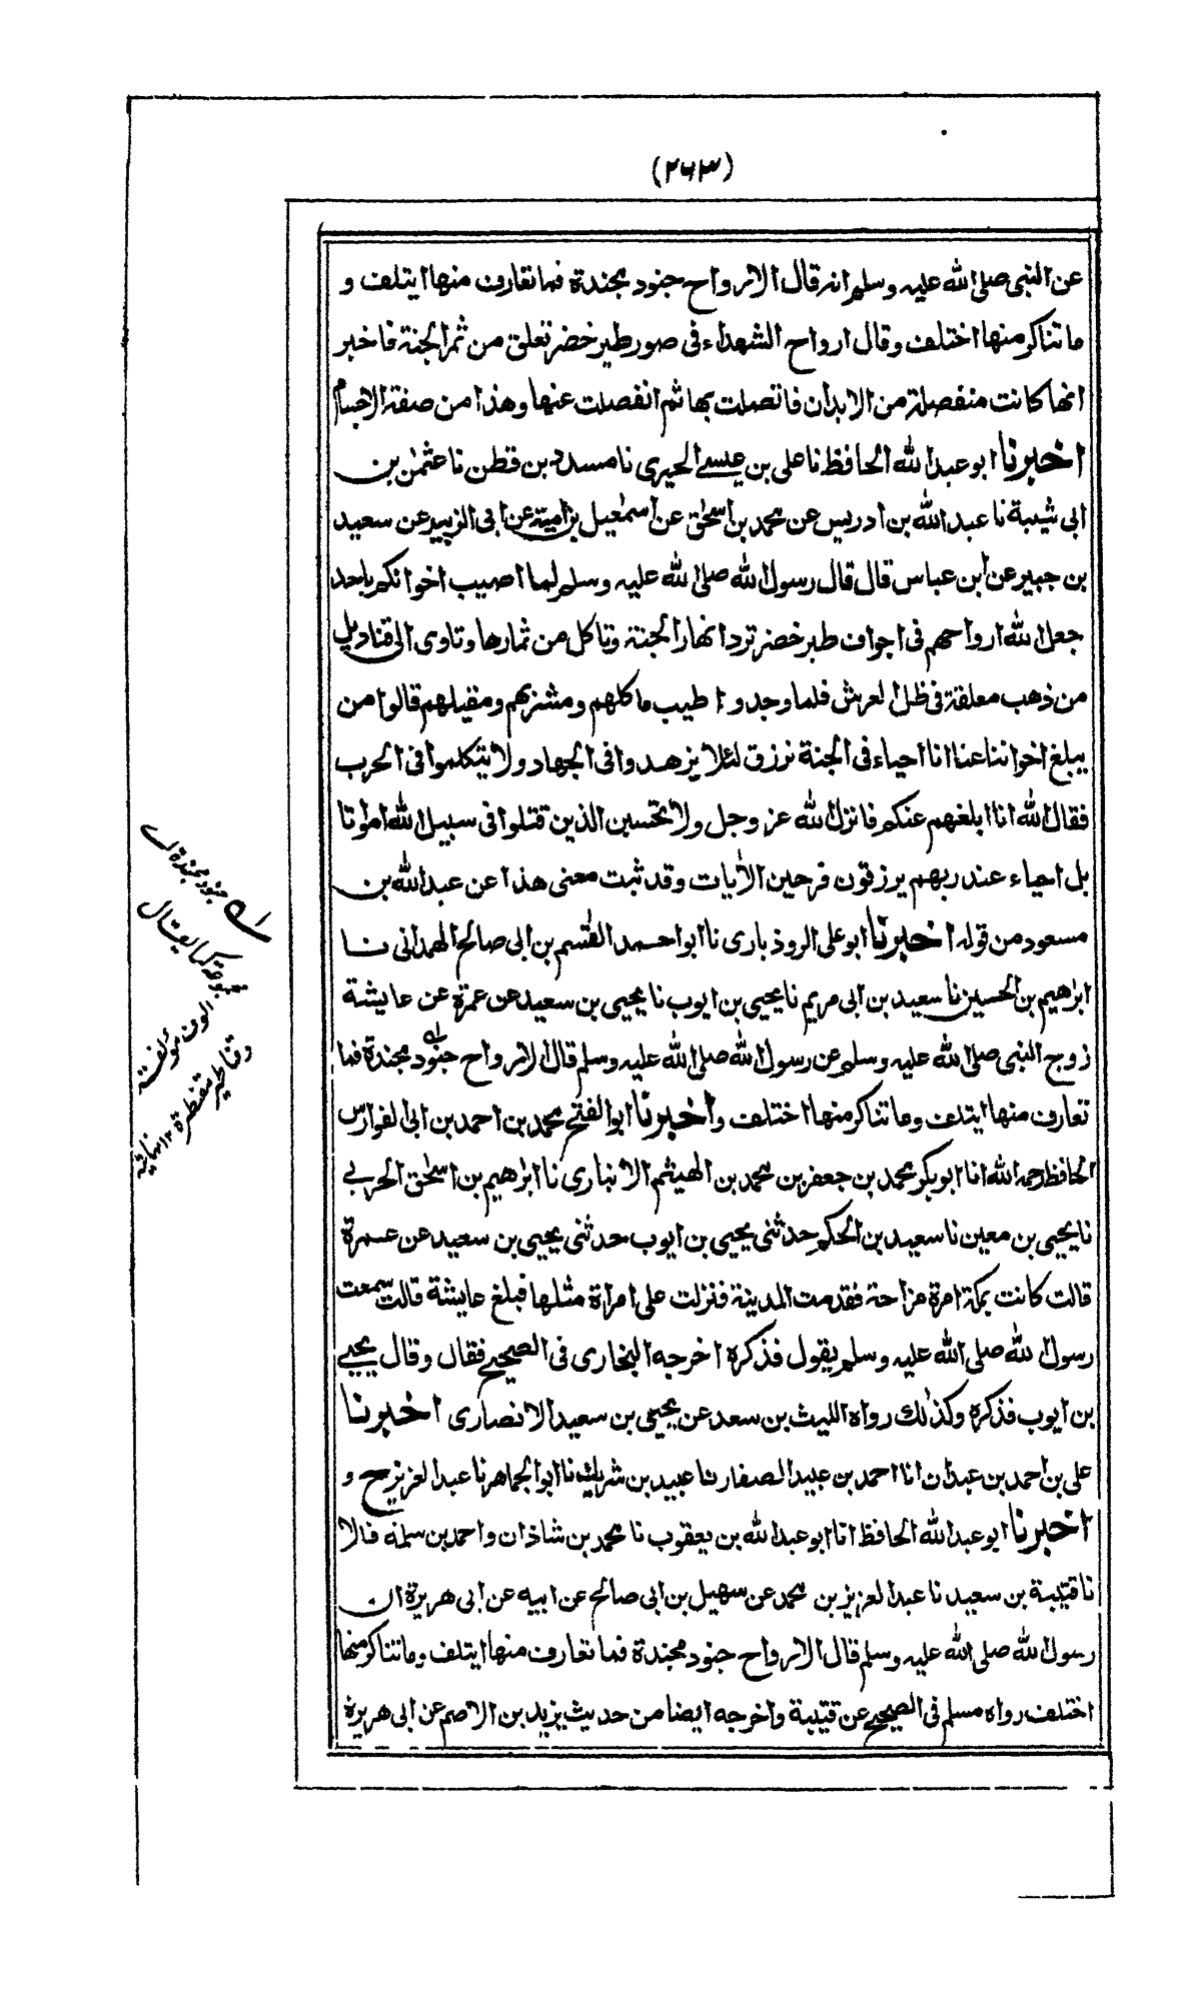 (٢٦٣)
عن النبى صلى الله عليه وسلم انه قال الارواح جنود مجندة فما تعارف منها ايتلف و
ما تناكر منها اختلف وقال ارواح الشهداء فى صور طير خضر تعلق من ثمر الجنة فاخبر
انها كانت منفصلة من الابدان فاتصلت بها ثم انفصلت عنها وهذا من صفة الاجسام
اخبرنا ابو عبد الله الحافظ نا على بن عيسے الحيرى نا مسدد بن قطن نا عثمٰن بن
ابى شيبة نا عبد الله بن ادريس عن محمد بن اسحٰق عن اسمٰعيل بن امية عن ابى الزبير عن سعيد
بن جبير عن ابن عباس قال قال رسول الله صلى الله عليه وسلم لما اصيب اخوانكم باحد
جعل الله ارواحهم فى اجواف طير خضر ترد انهار الجنة وتاكل من ثمارها وتاوى الى قناديل
من ذهب معلقة فى ظل العرش فلما وجدوا طيب ماكلهم ومشربهم ومقيلهم قالوا من
يبلغ اخواننا عنا انا احياء فى الجنة نرزق لئلا يزهدوا فى الجهاد ولا يتكلموا فى الحرب
فقال الله انا ابلغهم عنكم فانزل الله عز وجل ولا تحسبن الذين قتلوا فى سبيل الله امواتا
بل احياء عند ربهم يرزقون فرحين الاٰيات وقد ثبت معنى هذا عن عبد الله بن
مسعود من قوله اخبرنا ابو على الروذبارى نا ابو احمد القٰسم بن ابى صالح الهمدانى نا
ابرٰهيم بن الحسين نا سعيد بن ابى مريم نا يحيى بن ايوب نا يحيى بن سعيد عن عمرة عن عايشة
زوج النبى صلى الله عليه وسلم عن رسول الله صلى الله عليه وسلم قال الارواح جنود مجندة فما
تعارف منها ايتلف وما تناكر منها اختلف واخبرنا ابو الفتح محمد بن احمد بن ابى الفوارس
الحافظ رحمه الله انا ابو بكر محمد بن جعفر بن محمد بن الهيثم الانبارى نا ابرٰهيم بن اسحٰق الحربے
نا يحيى بن معين نا سعيد بن الحكم حدثنى يحيى بن ايوب حدثنى يحيى بن سعيد عن عمرة
قالت كانت بمكة امرة مزاحة فقدمت المدينة فنزلت على امراة مثلها فبلغ عايشة قالت سمعت
رسول الله صلى الله عليه وسلم يقول فذكره اخرجه البخارى فى الصحيح فقال وقال يحيے
بن ايوب فذكره وكذلك رواه الليث بن سعد عن يحيى بن سعيد الانصارى اخبرنا
على بن احمد بن عبدان انا احمد بن عبيد الصفار نا عبيد بن شريك نا ابو الجماهر نا عبد العزيز ح و
اخبرنا ابو عبد الله الحافظ انا ابو عبد الله بن يعقوب نا محمد بن شاذان واحمد بن سلمة قالا
نا قتيبة بن سعيد نا عبد العزيز بن محمد عن سهيل بن ابى صالح عن ابيه عن ابى هريرة ان
رسول الله صلى الله عليه وسلم قال الارواح جنود مجندة فما تعارف منها ايتلف وما تناكر منها
اختلف رواه مسلم فى الصحيح عن قتيبة واخرجه ايضا من حديث يزيد بن الاصم عن ابى هريرة
جنود مجندة اے
مجموعة كما يقال
الوف مؤلفة
وقناطير مقنطرة ١٢ نهاية